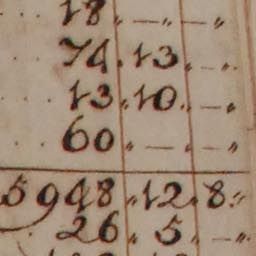 18 . — " — "
74 . 13 . — "
13 . 10 . — "
60 " — . — "
5948 . 12 . 8 "
26 . 5 . — "